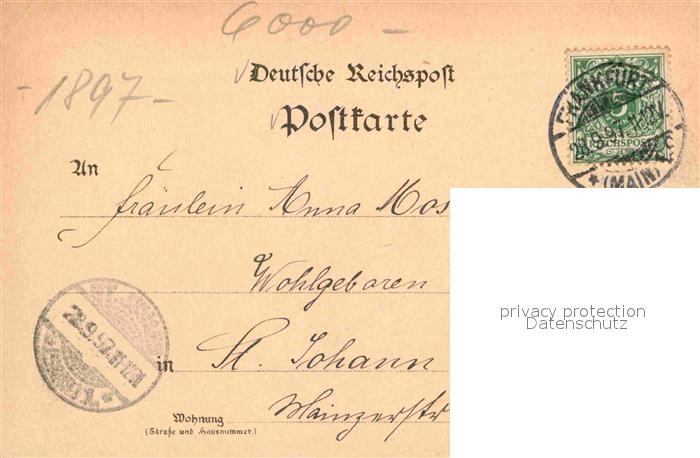 6000 -
Deutsche Reichspost
- 1897 -
Postkarte
FRANKFURT
5
REICHSPOST
* (MAIN)
An
Fräulein Anna Mos
Wohlgeboren
privacy protection
Datenschutz
28.9.97
in St. Johann
Mainzerstr
Wohnung
(Straße und Hausnummer.)